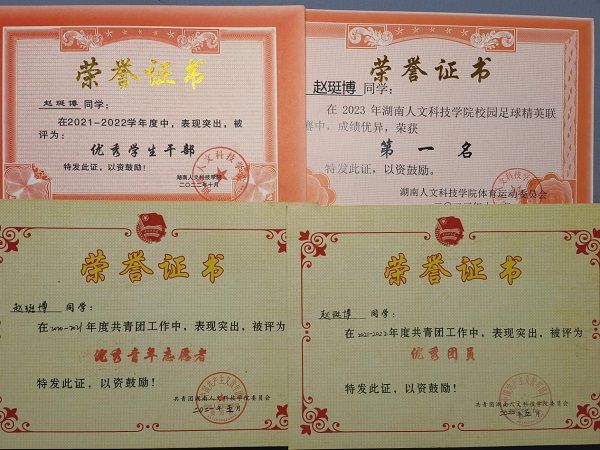 荣誉证书
赵珽博 同学：
在2021-2022学年度中，表现突出，被
评为：
优秀学生干部
特发此证，以资鼓励！
湖南人文科技学院
二〇二二年十月
荣誉证书
赵珽博 同学：
在 2023 年湖南人文科技学院校园足球精英联
赛中，成绩优异，荣获
第一名
特发此证，以资鼓励。
湖南人文科技学院体育运动委员会
荣誉证书
赵珽博 同学：
在2020-2021年度共青团工作中，表现突出，被评为
优秀青年志愿者
特发此证，以资鼓励！
共青团湖南人文科技学院委员会
二〇二一年五月
荣誉证书
赵珽博 同学：
在2021-2022年度共青团工作中，表现突出，被评为
优秀团员
特发此证，以资鼓励！
共青团湖南人文科技学院委员会
二〇二二年五月